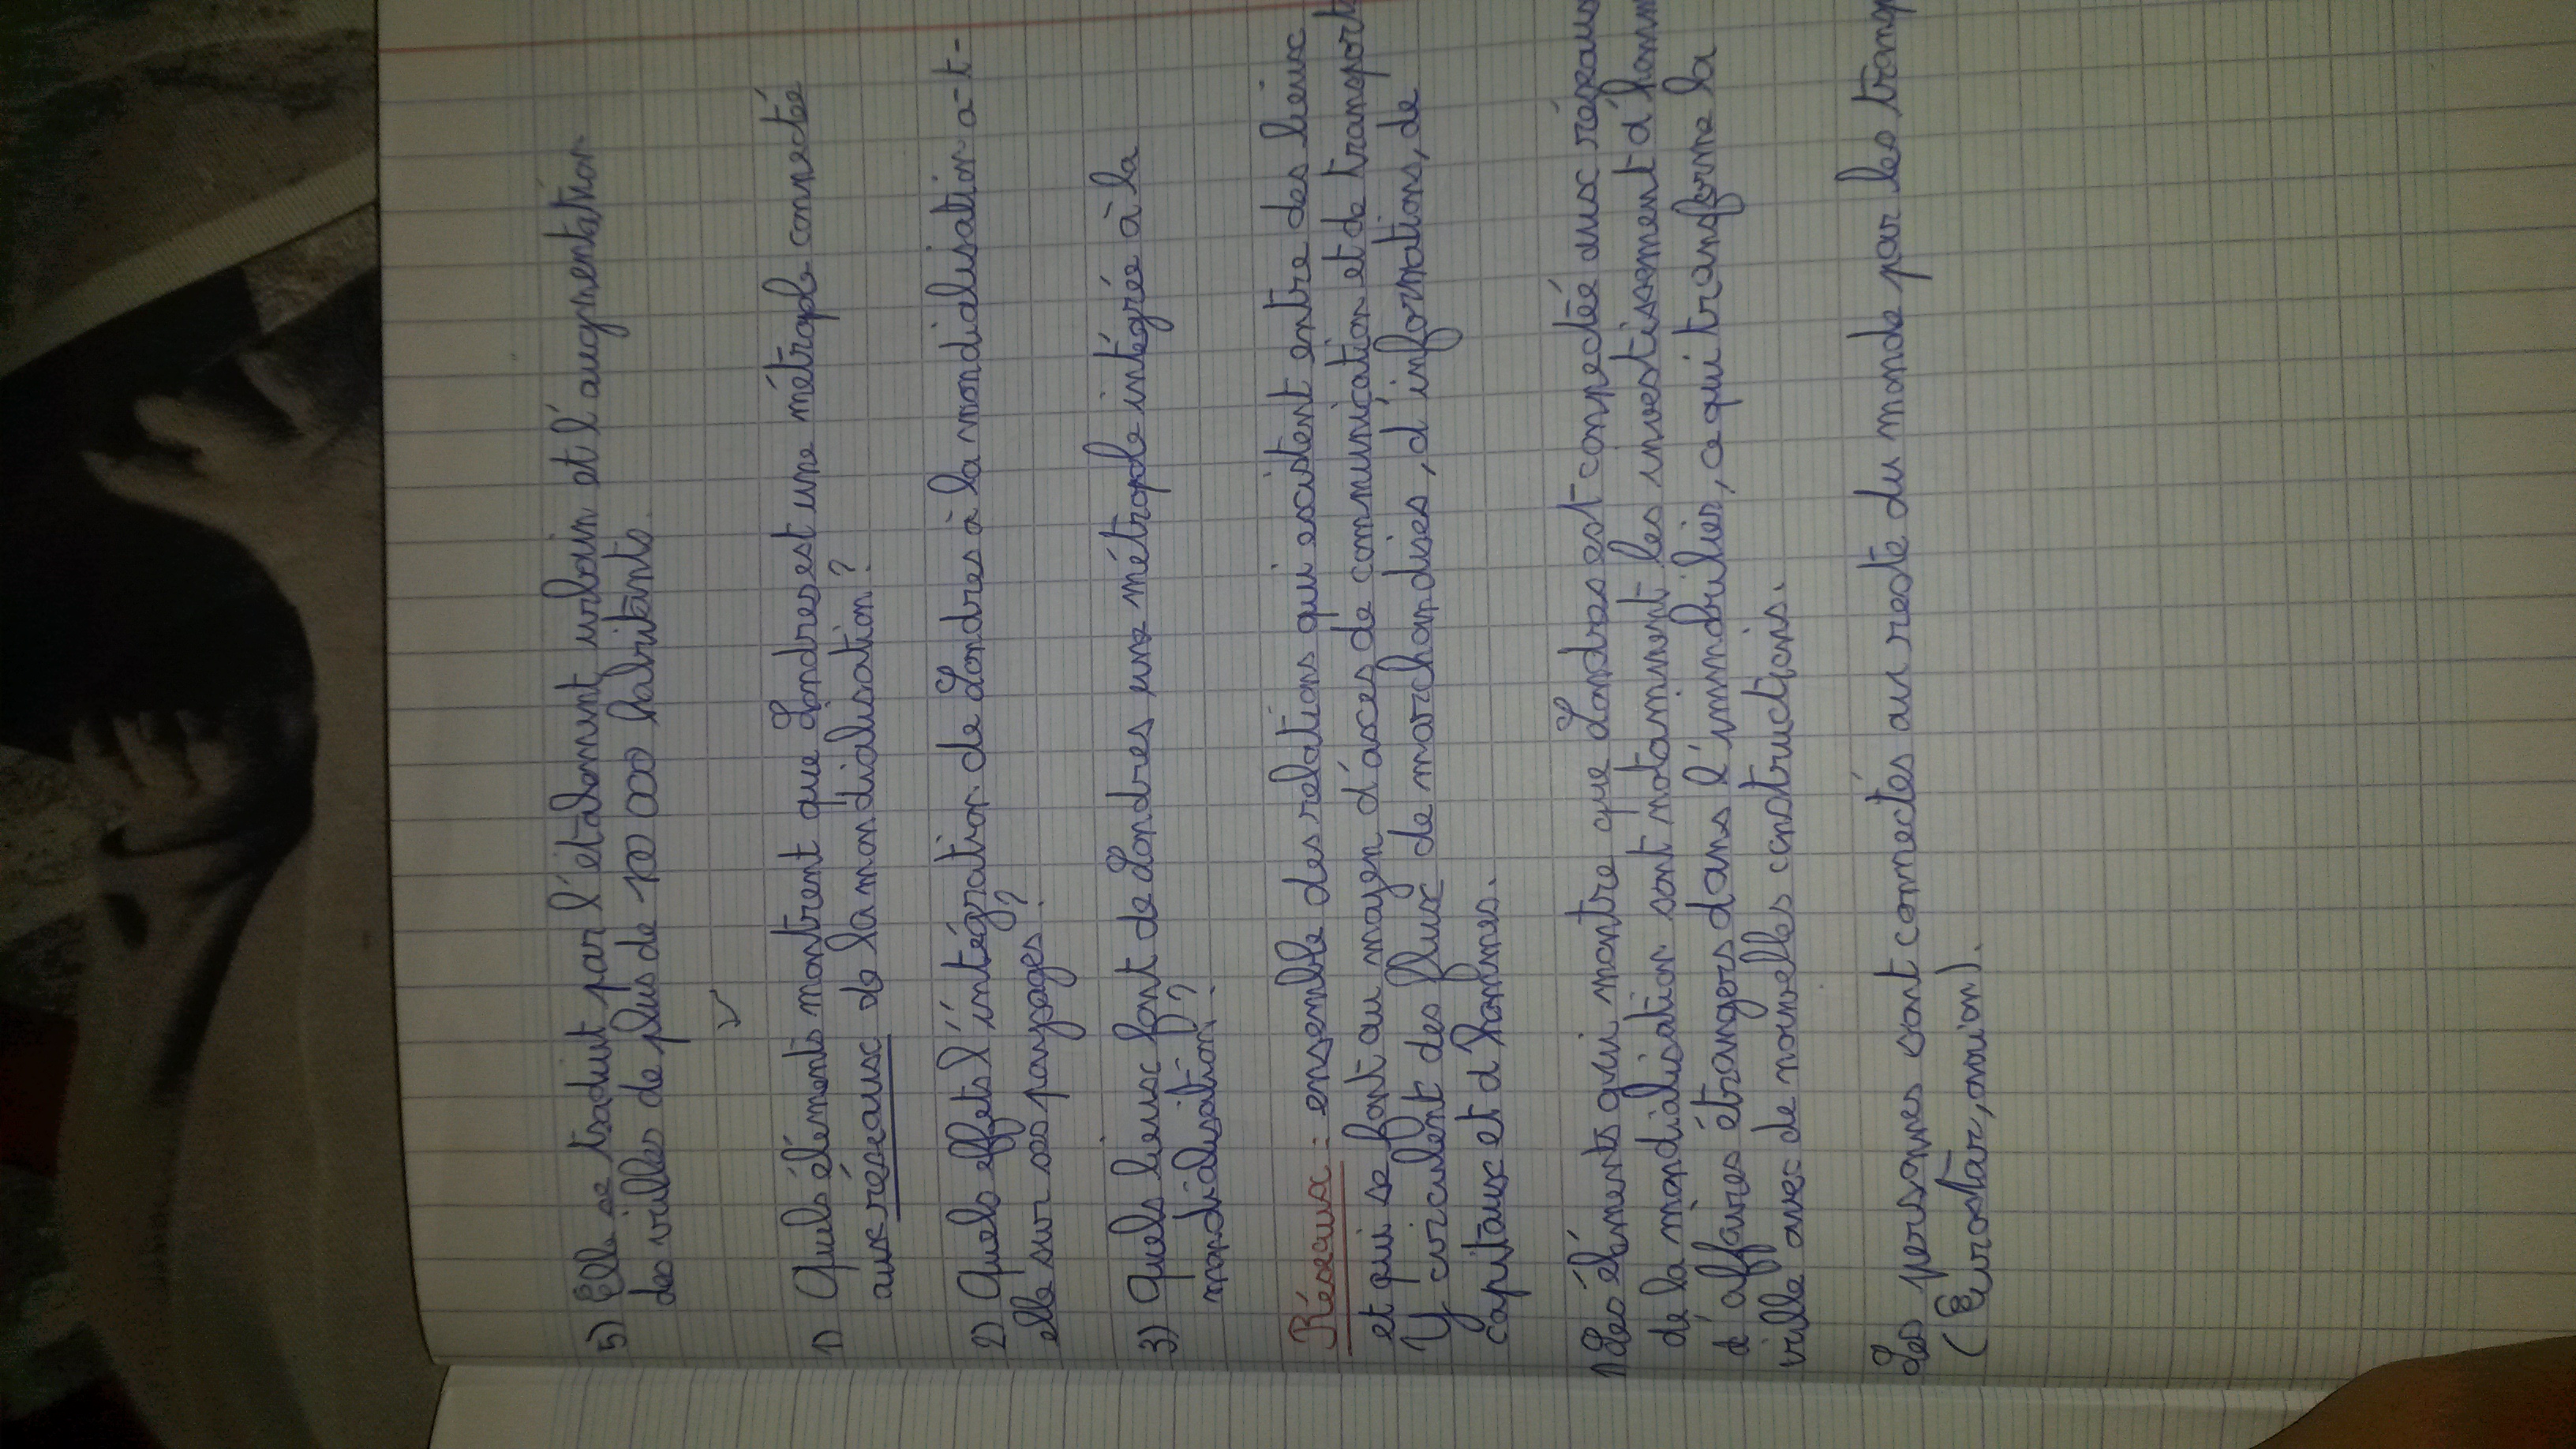 5) Elle se traduit par l'étalement urbain et l'augmentation
des villes de plus de 100 000 habitants.
1) Quels éléments montrent que Londres est une métropole connecté
aux réseaux de la mondialisation?
2) Quels effets l'intégration de Londres à la mondialisation a-t-
elle sur ses paysages?
3) Quels lieux font de Londres une métropole intégrée à la
mondialisation?
Réseaux : ensemble des relations qui existent entre des lieux
et qui se font au moyen d'axes de communication et de transport
Y circulent des flux de marchandises, d'informations, de
capitaux et d'hommes.
1) Les éléments qui montre que Londres est connectée aux réseaux
de la mondialisation sont notamment les investissement d'homm
d'affaires étrangers dans l'immobilier, ce qui transforme la
ville avec de nouvelles constructions.
Les personnes sont connectés au reste du monde par les transp
(Eurostar, avion).